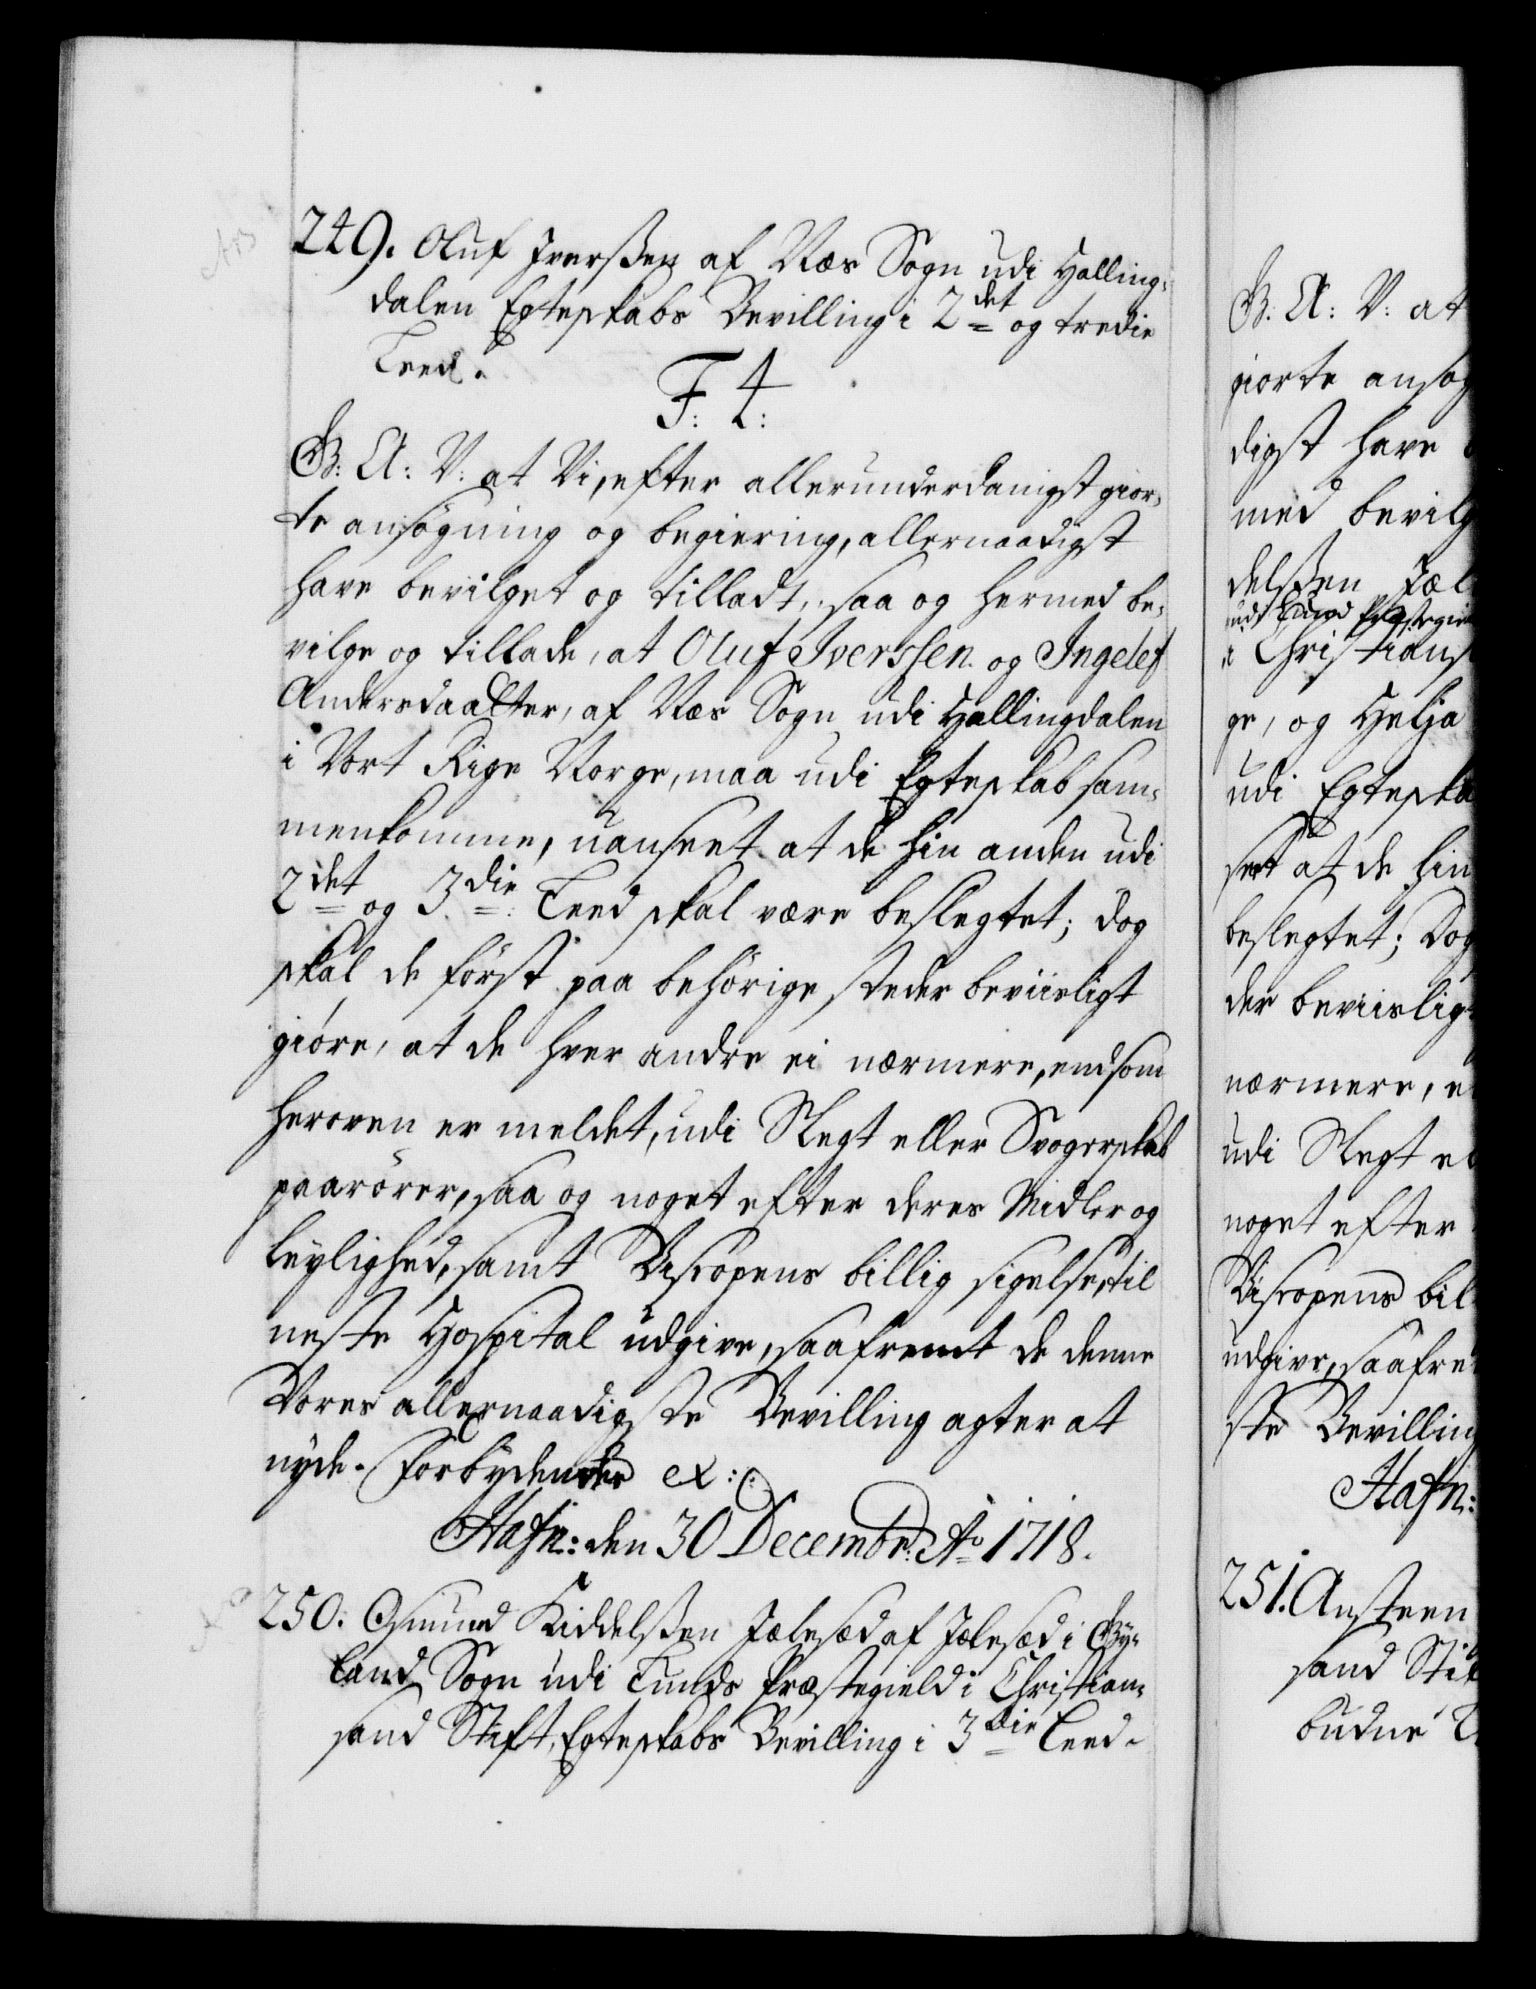 249. Oluf Iverssen af Næs Sogn udi Halling-
dalen Egteskabs Bevilling i 2det og tredie
Leed.
F: 4:
G: A: V: at Vi, efter allerunderdanigst gior-
te ansøgning og begiering, allernaadigst
have bevilget og tilladt, saa og hermed be-
vilge og tillade, at Oluf Iverssen og Ingelef
Andersdaatter, af Næs Sogn udi Hallingdalen
i Vort Rige Norge, maa udi Egteskab sam-
menkomme, uanseet at de hin anden udi
2det og 3die Leed skal være beslegtet; dog
skal de først paa behörige steder beviisligt
giöre, at de hver andre ei nærmere, end som
heroven er meldet, udi Slegt eller Svogerskab
paarörer, saa og noget efter deres Midler og
leylighed, samt Biscopens billig sigelse, til
neste Hospital udgive, saafremt de denne
Vores allernaadigste Bevilling agter at
nyde. Forbydendes &c:
Hafn: den 30 Decembr: Ao 1718.
250. Osmund Kiddelssen Jælesæd af Jælesæd i By-
land Sogn udi Lunds Præstegield i Christian-
sand Stift, Egteskabs Bevilling i 3die Leed.
G: A: V: at
giorte ansøg
digst have
med bevilg
delssen Jæl
udi Lund Præstegie
i Christians
ge, og Helja
udi Egteska
set at de hin
beslegtet; Dog
der beviislig
nærmere, e
udi Slegt el
noget efter
Biscopens bil
udgive, saafre
ste Bevilling
Hafn:
251. Ansteen
sand Sti
budne